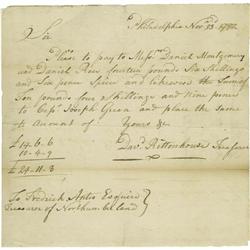 Philadelphia Nov.r 13. 1782
Sir
Please to pay to Mess.rs Daniel Montgomery
and Daniel Rees fourteen pounds Six Shillings
and Six pence Specie and likewise the Sum of
Ten pounds four Shillings and Nine pence
to Cap.t Joseph Green and place the same
to Account of Yours &c
£ 14.. 6.. 6
10.. 4.. 9
Dav.d Rittenhouse Treasurer
£ 24.. 11.. 3
To Fredrick Antis Esquire
Treasurer of Northumb.land